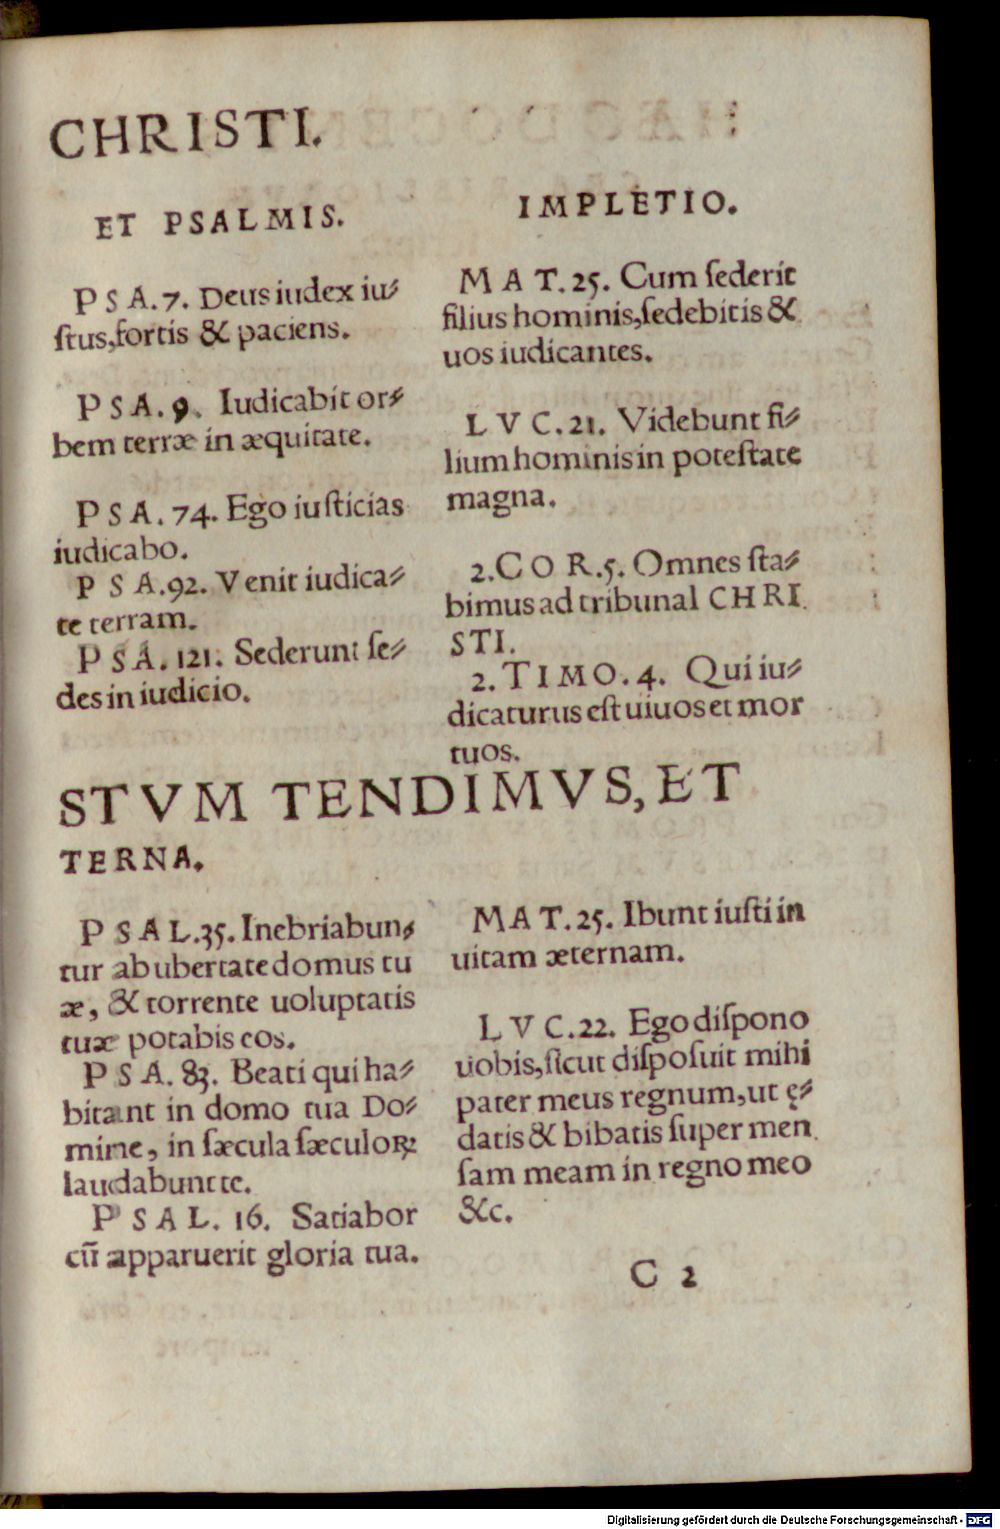 CHRISTI.
ET PSALMIS.
PSA.7. Deus iudex iu⸗
ſtus,fortis & paciens.
PSA.9. Iudicabit or⸗
bem terræ in æquitate.
PSA.74. Ego iuſticias
iudicabo.
PSA.92. Venit iudica⸗
te terram.
PSA.121. Sederunt ſe⸗
des in iudicio.
IMPLETIO.
MAT.25. Cum ſederit
filius hominis,ſedebitis &
uos iudicantes.
LVC.21. Videbunt fi⸗
lium hominis in poteſtate
magna.
2.COR.5. Omnes ſta⸗
bimus ad tribunal CHRI
STI.
2.TIMO.4. Qui iu⸗
dicaturus eſt uiuos et mor
tuos.
STVM TENDIMVS, ET
TERNA.
PSAL.35. Inebriabun⸗
tur ab ubertate domus tu
æ, & torrente uoluptatis
tuæ potabis eos.
PSA.83. Beati qui ha⸗
bitant in domo tua Do⸗
mine, in ſæcula ſæculoꝝ
laudabunt te.
PSAL.16. Satiabor
cū apparuerit gloria tua.
MAT.25. Ibunt iuſti in
uitam æternam.
LVC.22. Ego diſpono
uobis,ſicut diſpoſuit mihi
pater meus regnum,ut ę⸗
datis & bibatis ſuper men
ſam meam in regno meo
&c.
C 2
Digitalisierung gefördert durch die Deutsche Forschungsgemeinschaft - DFG